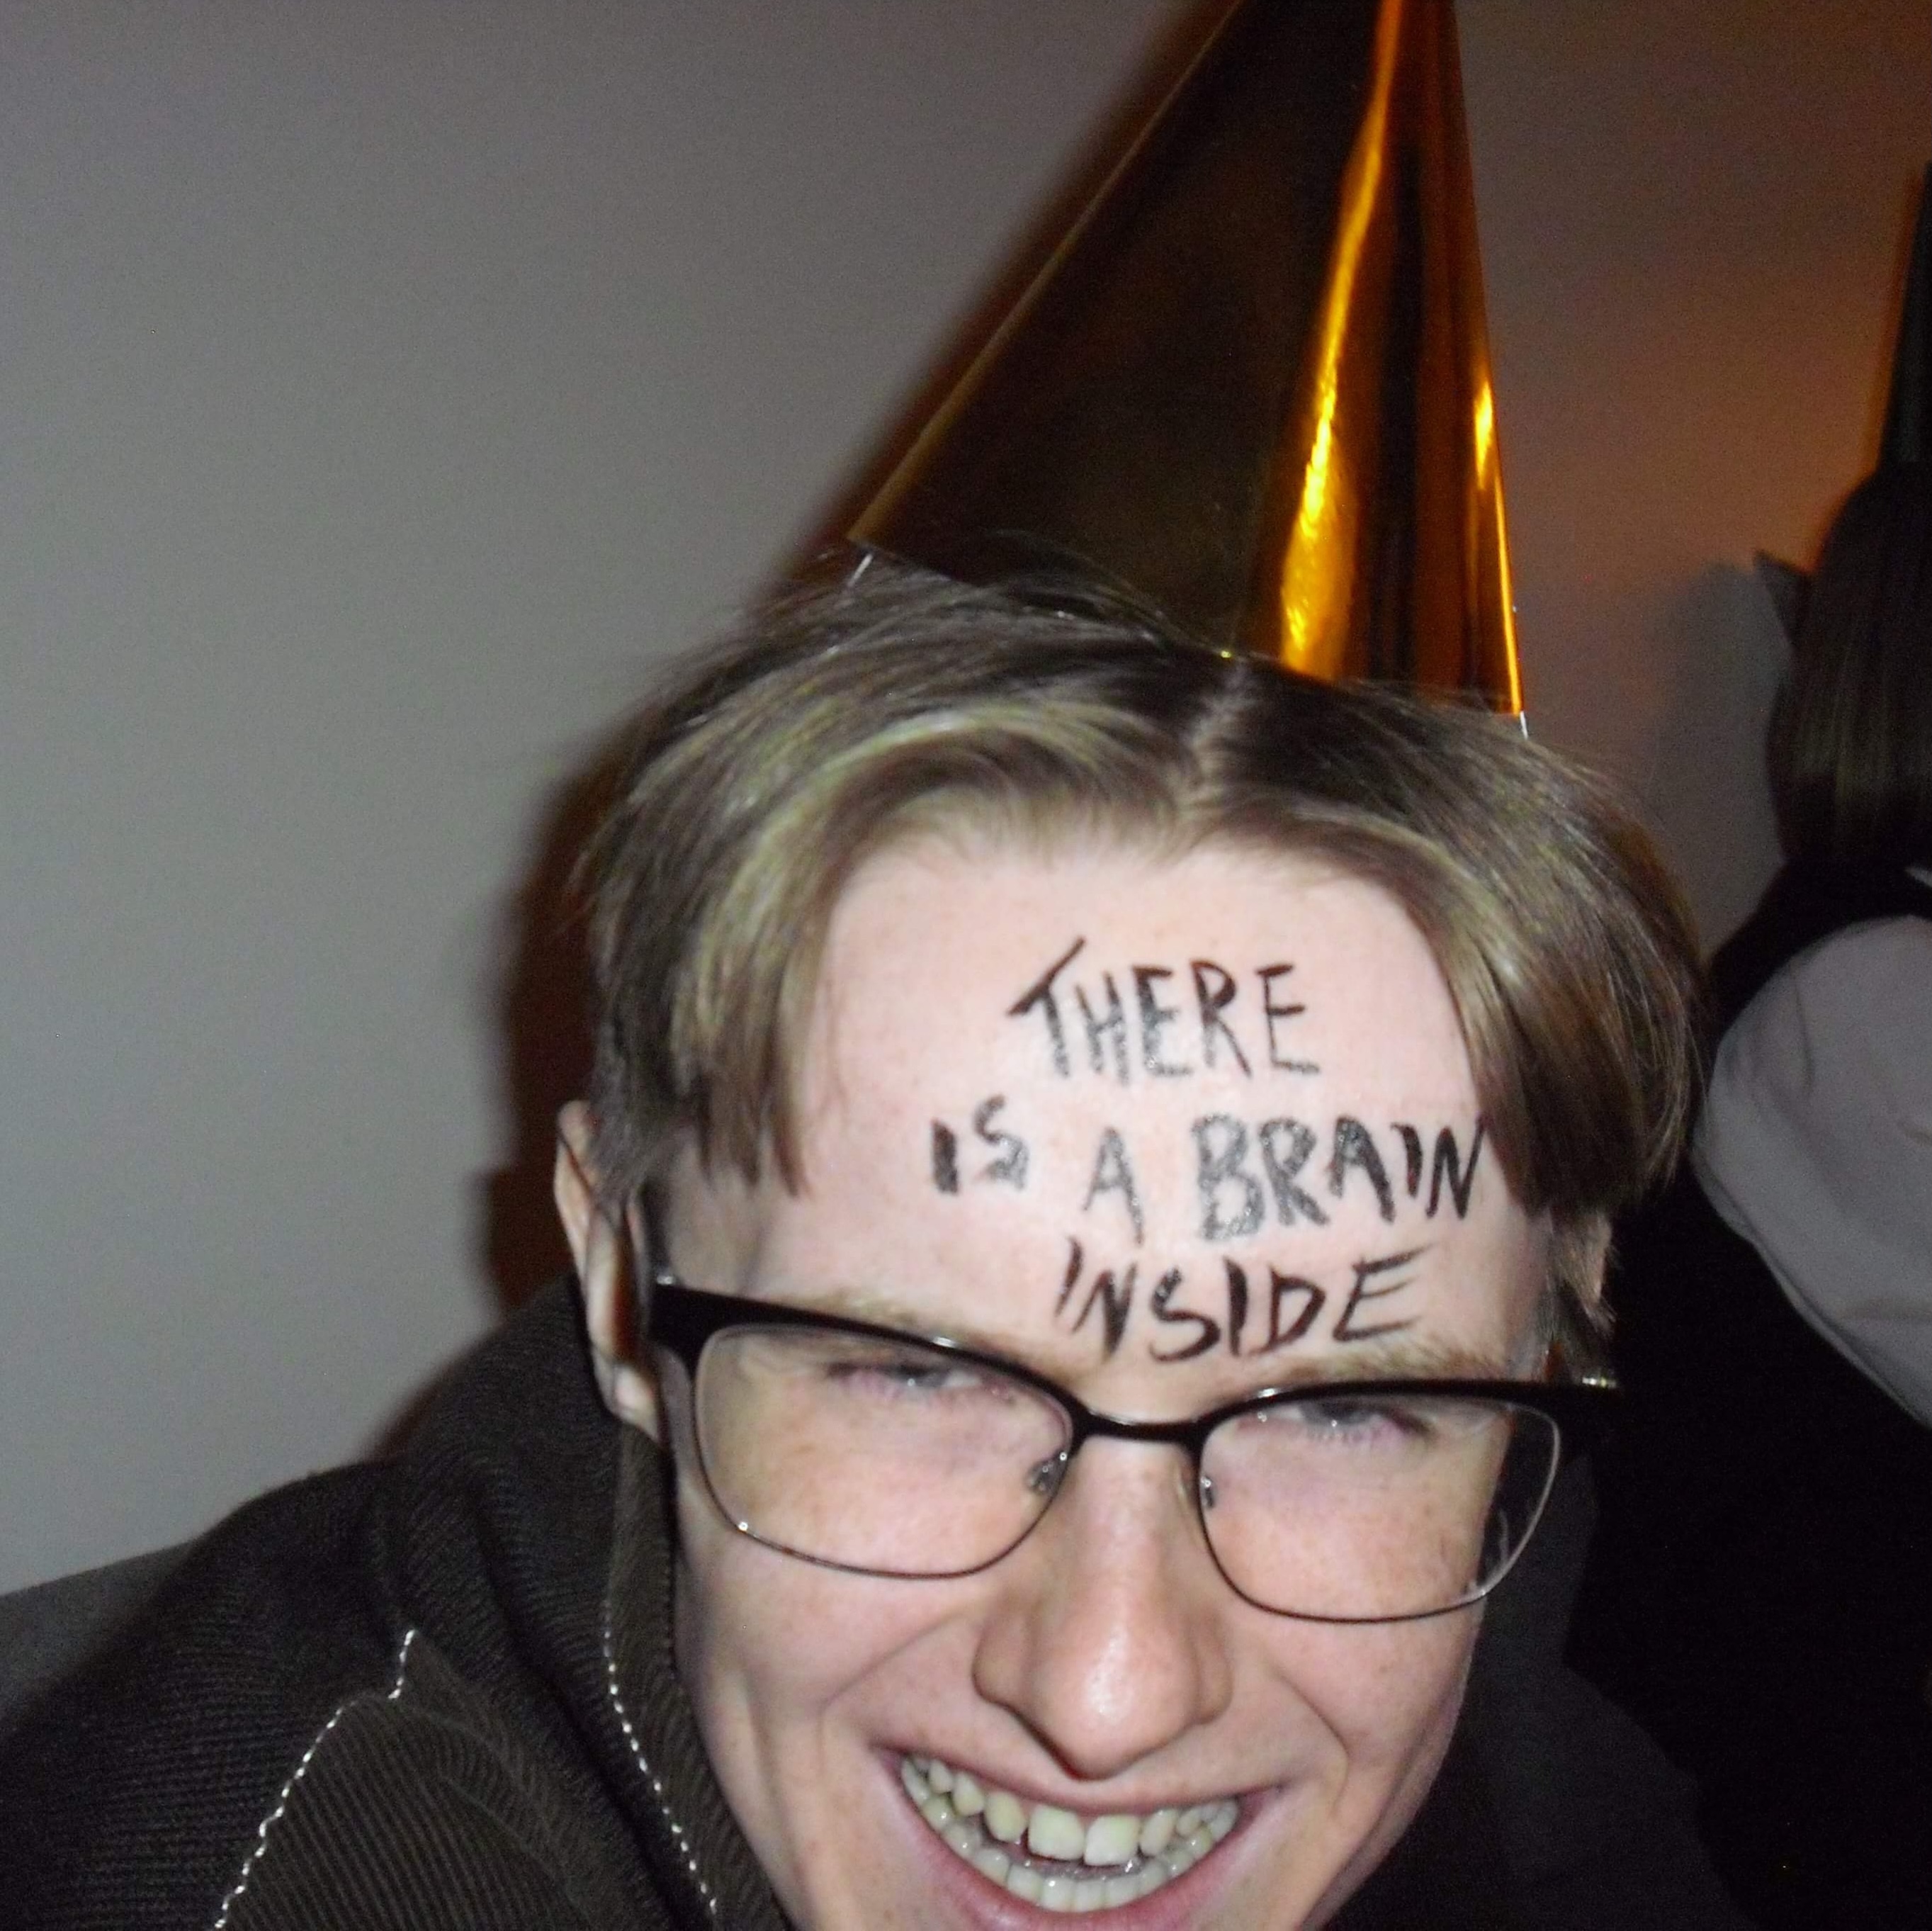 THERE
IS A BRAIN
INSIDE